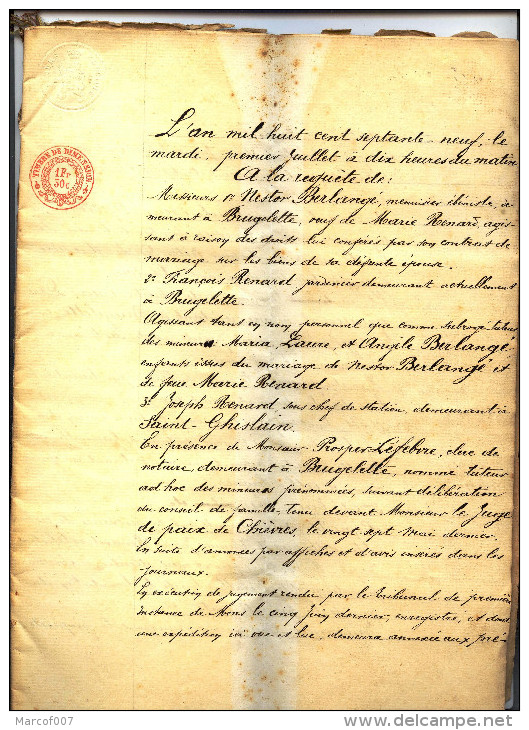 TIMBRE DE DIMENSION
1 Fr
50 c
L'an mil huit cent septante-neuf, le
mardi, premier Juillet à dix heures du matin
A la requête de:
Messieurs 1° Nestor Berlange, menuisier ébéniste, de
meurant à Brugelette, veuf de Marie Renard, agis
sant à raison des droits lui conférés par son contrat de
mariage sur les biens de sa défunte épouse.
2° François Renard jardinier demeurant actuellement
à Brugelette.
Agissant tant en nom personnel que comme subrogé tuteur
des mineurs Maria, Laure, et Angèle Berlange,
enfants issus du mariage de Nestor Berlange et
de feue Marie Renard
3° Joseph Renard, sous chef de station, demeurant à
Saint-Ghislain.
En présence de Monsieur Prosper Lefebvre, clerc de
notaire, demeurant à Brugelette, nommé tuteur
ad hoc des mineurs prénommées, suivant délibération
du conseil de famille tenu devant Monsieur le Juge
de paix de Chièvres, le vingt sept Mai dernier.
En suite d'annonces par affiches et d'avis insérés dans les
journaux.
En exécution de jugement rendu par le tribunal de première
instance de Mons le cinq Juin dernier, enregistré, et dont
une expédition ici vue et lue, demeura annexée aux pré-
Marcof007
delcampe.net